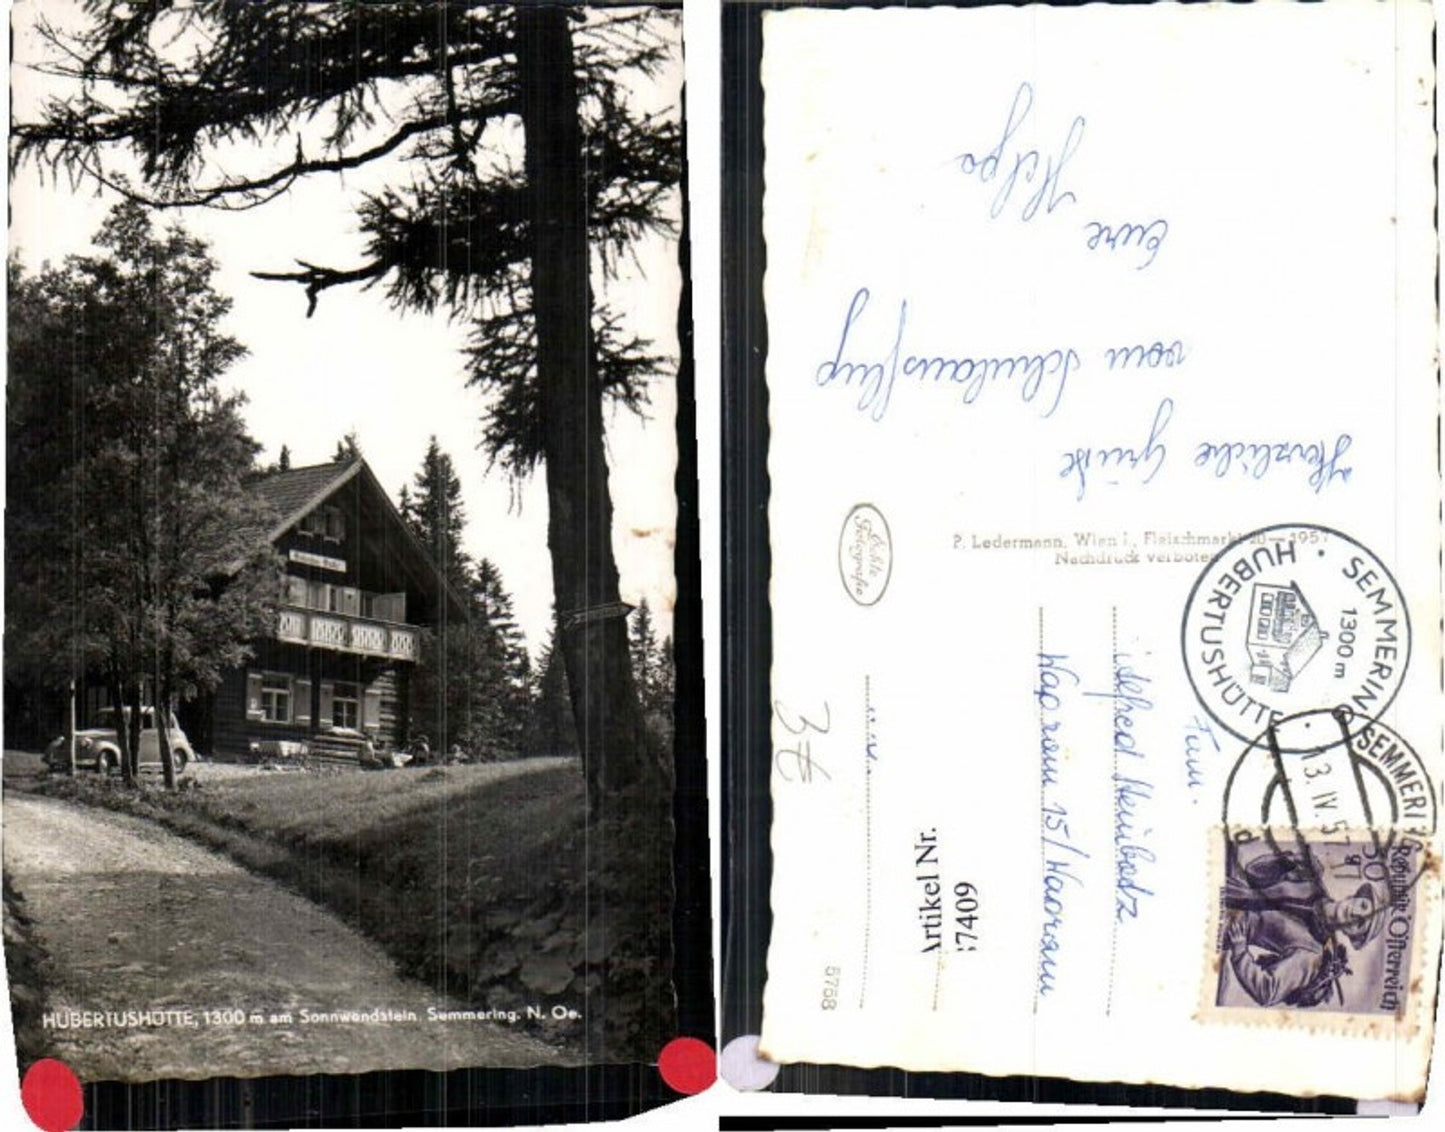 HUBERTUSHÜTTE, 1300 m am Sonnwendstein. Semmering. N. Oe.
Herzliche Grüße
vom Schulausflug
Eure
Helga
P. Ledermann, Wien I., Fleischmarkt 20 — 195
Nachdruck verboten
Echte
Fotografie
SEMMERING
1300 m
HUBERTUSHÜTTE
SEMMERING
13. IV. 57
Fam.
Alfred
Wagram 15/Wagram
Republik Österreich
3€
Artikel Nr.
57409
5758